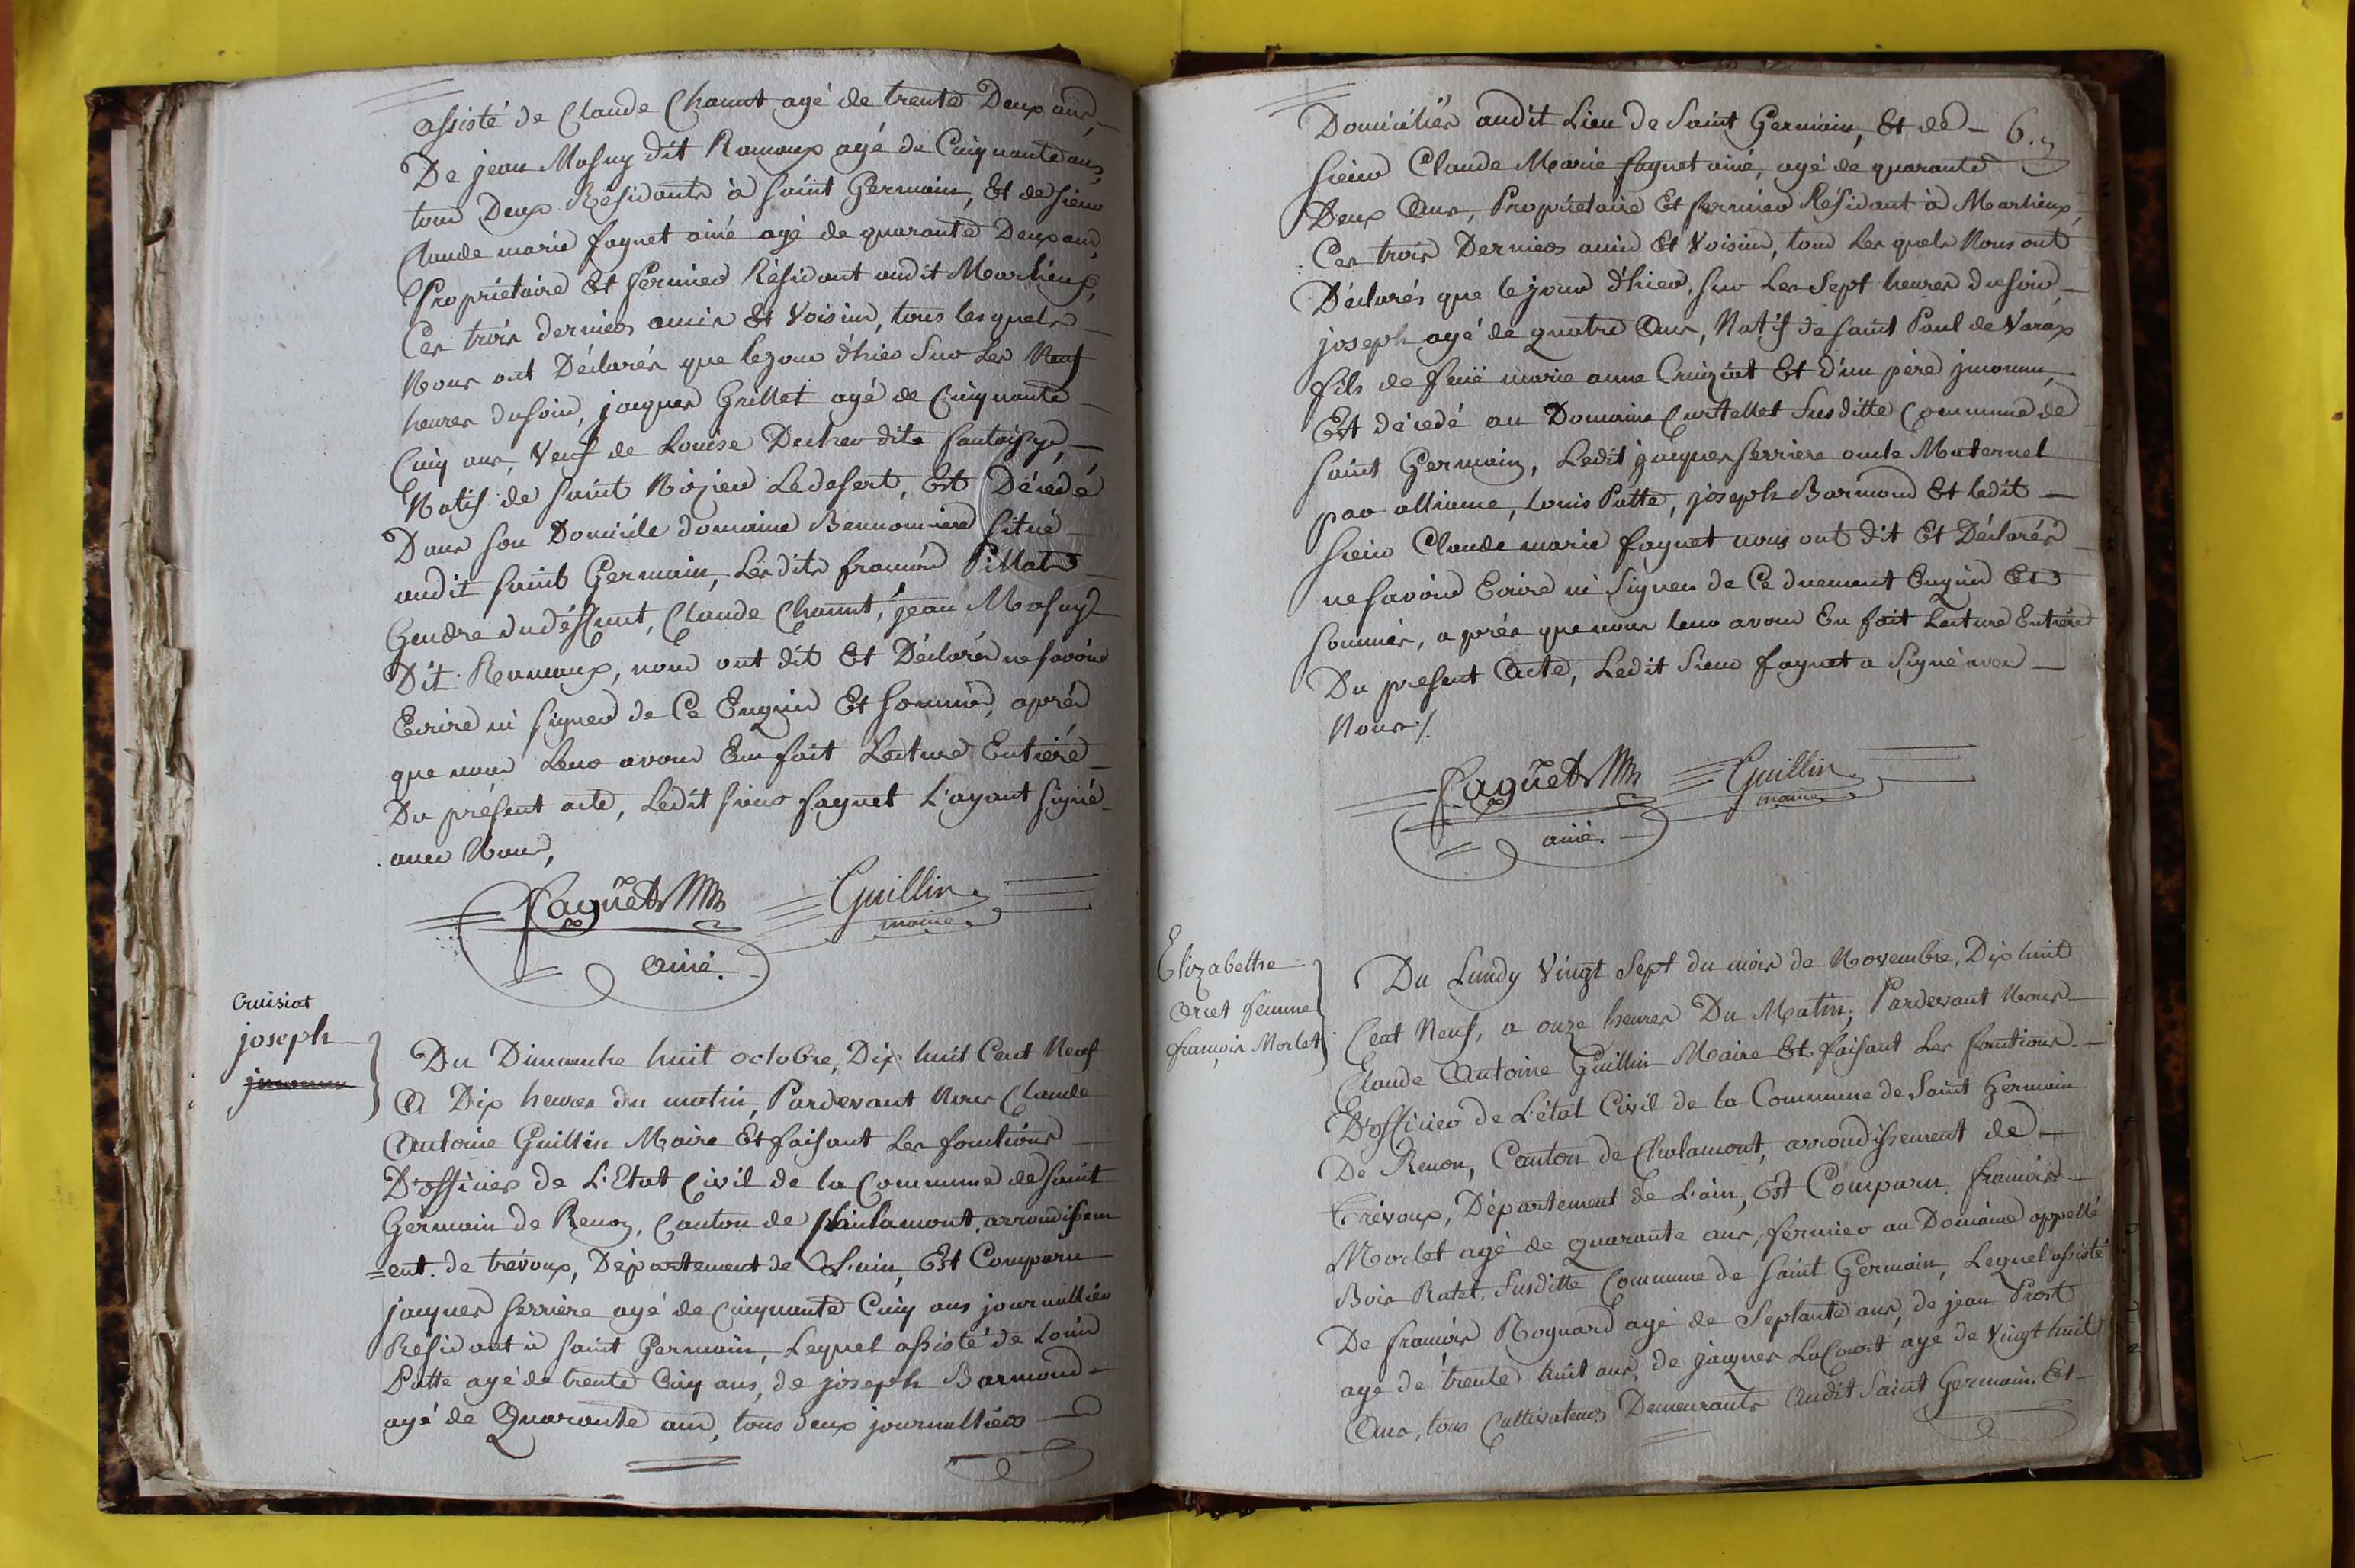 assisté de Claude Chanut agé de trente Deux ans,
De jean Masuy dit Ramaux agé de Cinquante ans,
tous Deux Résidants à saint Germain, Et de sieur
Claude marie faguet ainé agé de quarante Deux ans,
Propriétaire Et fermier Résidant audit Marlieux,
Ces trois derniers amis Et Voisins, tous lesquels
Nous ont Déclarés que le jour d'hier Sur Les Neuf
heures du soir, jacques Grillet agé de Cinquante
Cinq ans, Veuf de Louise dite
Natif de saint Nizier Ledesert, Est Décédé
Dans son Domicile domaine situé
audit saint Germain, Lesdits francois Pillat
Gendre du déffunt, Claude Chanut, jean Masuy
Dit Ramaux, nous ont dit Et Déclarés ne savoir
Ecrire ni signer de Ce Enquis Et sommés, après
que nous Leur avons Eu fait Lecture Entière
Du présent acte, Ledit sieur faguet L'ayant signé
avec Nous,
Faguet Guillin
maire
ainé.
Cruisiat
joseph
Du Dimanche huit octobre, Dix huit Cent Neuf
A Dix heures du matin, Pardevant Nous Claude
Antoine Guillin Maire Et faisant Les fonctions
D'officier de L'Etat Civil de la Commune de saint
Germain de Renon, Canton de Chalamont, arrondissem
=ent. de trévoux, Département de L'ain, Est Comparu
jacques ferrière agé de Cinquante Cinq ans journallier
Résidant à saint Germain, Lequel assisté de Louis
Putte agé de trente Cinq ans, de joseph Barmond
agé de Quarante ans, tous deux journalliers
Domiciliés audit Lieu de Saint Germain, Et de 6.
sieur Claude Marie faguet ainé, agé de quarante
Deux Ans, Propriétaire Et fermier Résidant à Marlieux,
Ces trois Derniers amis Et Voisins, tous Lesquels Nous ont
Déclarés que le jour d'hier, sur Les Sept heures du soir,
joseph agé de quatre Ans, Natif de saint Paul de Varax
fils de feüe marie anne Cruiziat Et d'un père jnconnu,
Est décedé au Domaine Curtellet Susditte Commune de
saint Germain, Ledit jacques ferriere oncle Maternel
par alliance, Louis Putte, joseph Barmond Et ledit
sieur Claude marie faguet nous ont dit Et Déclarés
ne savoir Ecrire ni Signer de Ce duement Enquis Et
sommés, après que nous leur avons Eu fait Lecture Entière
Du present Acte, Ledit Sieur faguet a Signé avec
Nous ./.
Faguet Guillin
maire
ainé.
Elizabethe
Oriet femme
francois Morlet
Du Lundy Vingt Sept du mois de Novembre, Dix huit
Cent Neuf, a onze heures Du Matin, Pardevant Nous
Claude Antoine Guillin Maire Et faisant Les fonctions
D'officier de L'état Civil de la Commune de Saint Germain
De Renon, Canton de Chalamont, arrondissement de
Trévoux, Département de L'ain, Est Comparu francois
Morlet agé de quarante ans, fermier au Domaine appellé
Bois Ratet, Susditte Commune de saint Germain, Lequel assisté
De francois Rognard agé de Septante ans, de jean Prost
agé de trente huit ans, de jacques Lacourt agé de Vingt huit
Ans, tous Cultivateurs Demeurants Audit Saint Germain. Et